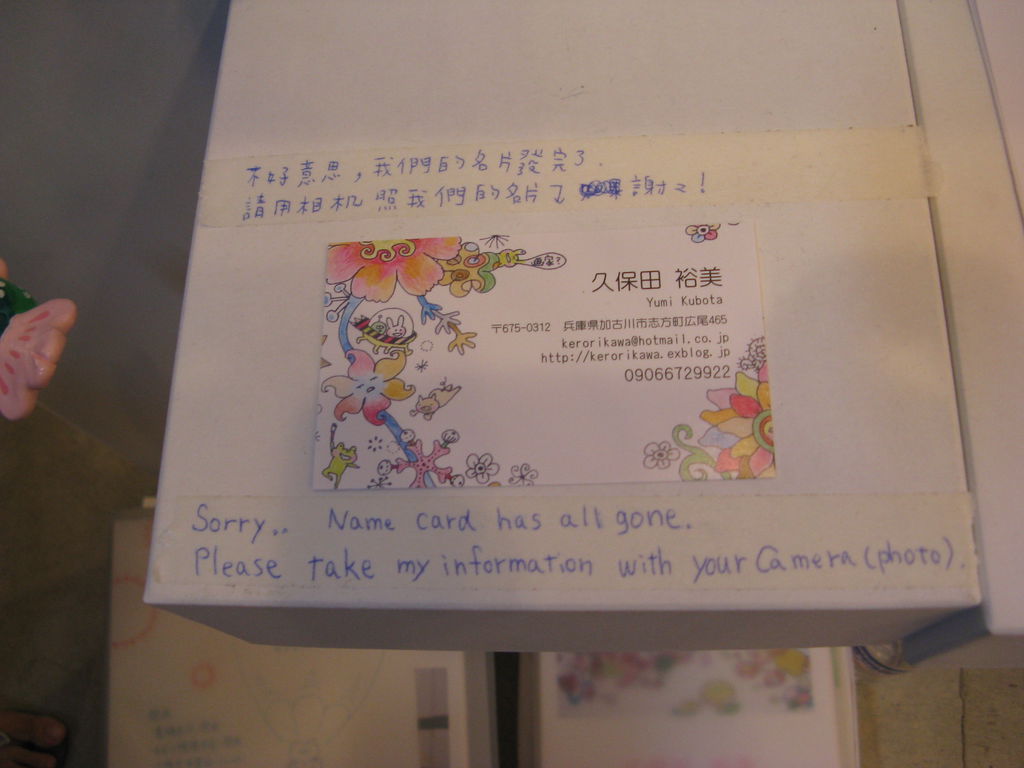 不好意思，我們的名片發完了.
請用相机照我們的名片了 謝々！
久保田 裕美
Yumi Kubota
〒675-0312 兵庫県加古川市志方町広尾465
kerorikawa@hotmail.co.jp
http://kerorikawa.exblog.jp
09066729922
Sorry.. Name card has all gone.
Please take my information with your Camera (photo).